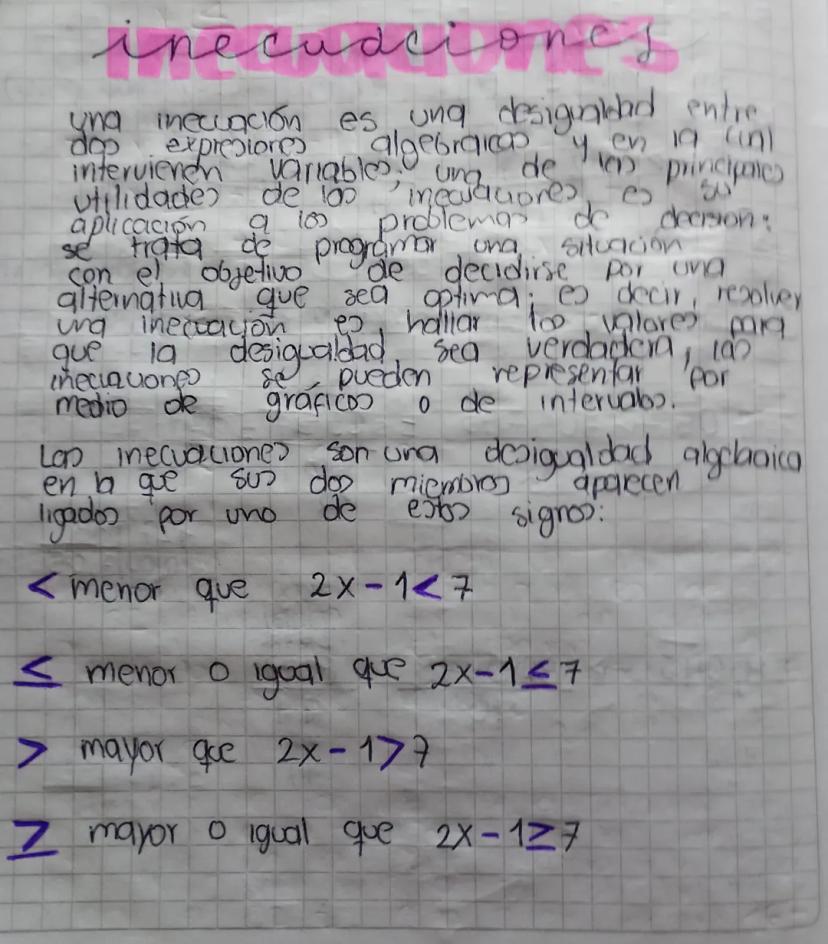 inecuaciones
una inecuación es una desigualdad entre
dos expresiones algebraicas y en la cual
intervienen variables. una de las principales
utilidades de las inecuaciones es su
aplicación a los problemas de decision:
se trata de programar una situación
con el objetivo de decidirse por una
alternativa que sea optima; es decir, resolver
una inecuación es, hallar los valores para
que la desigualdad, sea verdadera, las
inecuaciones se pueden representar por
medio de gráficos o de intervalos.
Las inecuaciones son una desigualdad algebraica
en la que sus dos miembros aparecen
ligados por uno de estos signos:
< menor que 2x-1<7
≤ menor o igual que 2x-1≤7
> mayor que 2x-1>7
≥ mayor o igual que 2x-1≥7